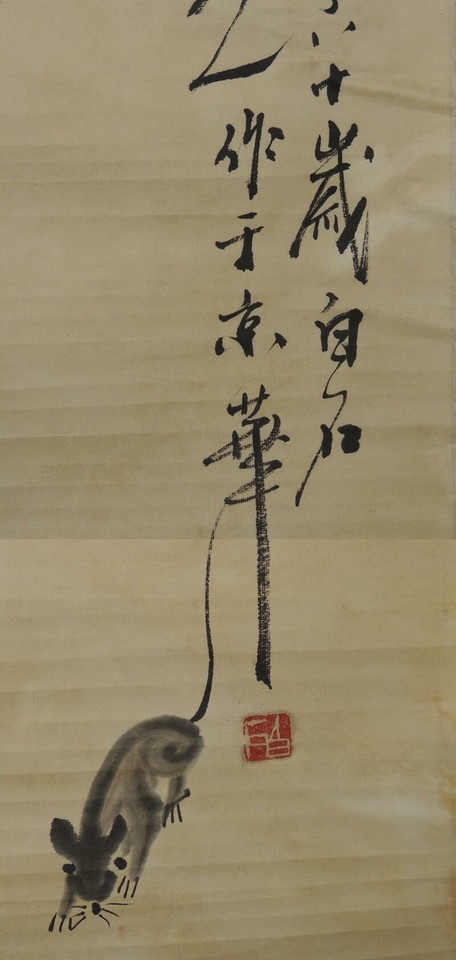 八十歲白石
作于京華
白石